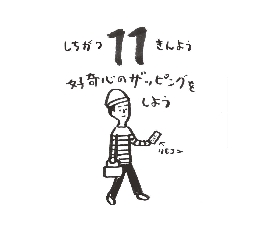 しちがつ 11 きんよう
好奇心のザッピングを
しよう
リモコン